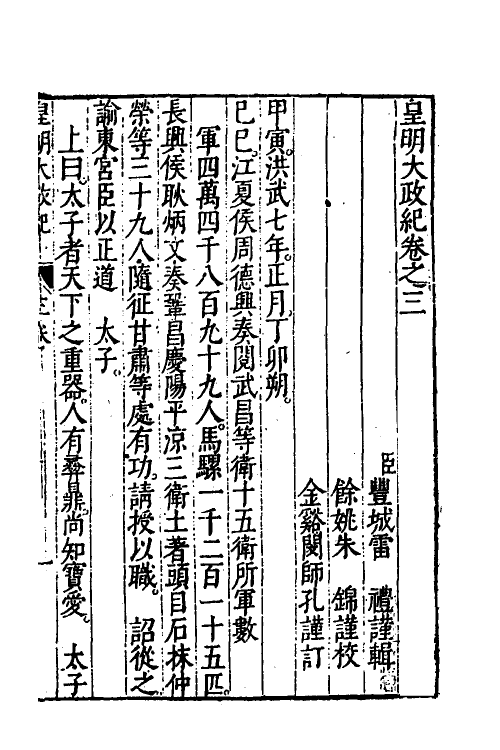 皇明大政紀卷之三
臣豐城雷　禮謹輯
餘姚朱　錦謹校
金谿閔師孔謹訂
甲寅。洪武七年。正月。丁卯朔。
己巳。江夏侯周德興奏閱武昌等衛十五衛所軍數
軍四萬四千八百九十九人。馬騾一千二百一十五匹。
長興侯耿炳文奏鞏昌慶陽平涼三衛土著頭目石抹仲
榮等三十九人。隨征甘肅等處有功。請授以職。　詔從之
諭東宮臣以正道　太子。
上曰。太子者天下之重器。人有彝鼎。尚知寶愛。　太子
皇明大政紀